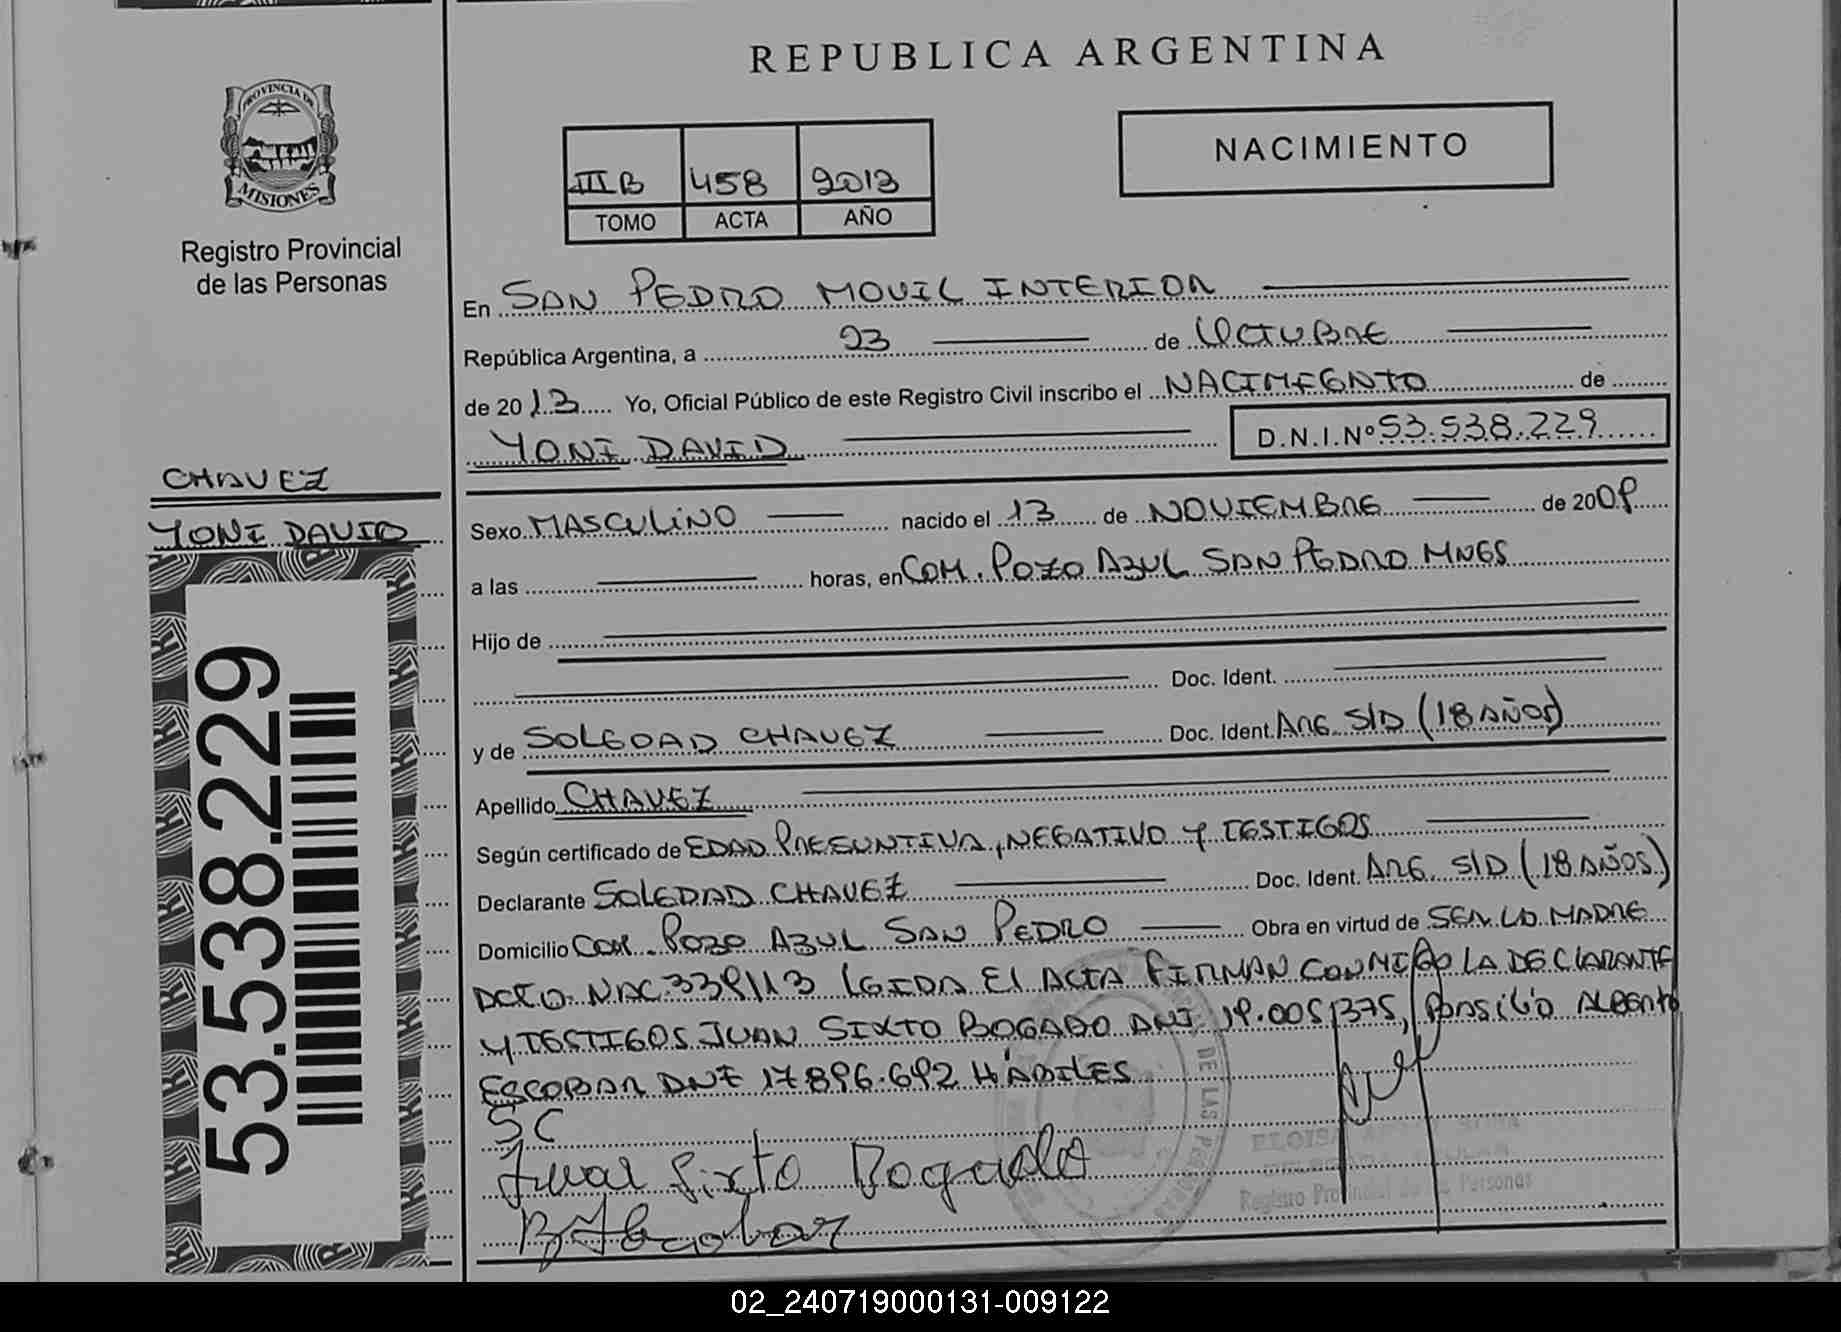 REPUBLICA ARGENTINA
PROVINCIA DE
MISIONES
Registro Provincial
de las Personas
NACIMIENTO
III B 458 2013
TOMO ACTA AÑO
En SAN PEDRO MOVIL INTERIOR
República Argentina, a 23 de OCTUBRE
de 20 13 Yo, Oficial Público de este Registro Civil inscribo el NACIMIENTO de
YONI DAVID D.N.I.Nº 53.538.229
CHAVEZ
YONI DAVID
53.538.229
Sexo MASCULINO nacido el 13 de NOVIEMBRE de 2009
a las horas, en COM. POZO AZUL SAN PEDRO MNES
Hijo de
Doc. Ident.
y de SOLEDAD CHAVEZ Doc. Ident. ARG. S/D (18 AÑOS)
Apellido CHAVEZ
Según certificado de EDAD PRESUNTIVA, NEGATIVO Y TESTIGOS
Declarante SOLEDAD CHAVEZ Doc. Ident. ARG. S/D (18 AÑOS)
Domicilio COM. POZO AZUL SAN PEDRO Obra en virtud de SER LA MADRE
DCTO. NAC 339/13 LEIDA EL ACTA FIRMAN CONMIGO LA DECLARANTE
Y TESTIGOS JUAN SIXTO BOGADO DNI 19.005.375, BASILIO ALBERTO
ESCOBAR DNI 17.896.692 HÁBILES
SC
Juan Sixto Bogado
B A Escobar
DE LAS
ELOISA
Registro Provincial de las Personas
02_240719000131-009122